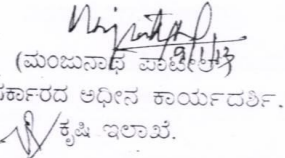 9/1/13
(ಮಂಜುನಾಥ ಪಾಟೀಲ)
ರ್ಕಾರದ ಅಧೀನ ಕಾರ್ಯದರ್ಶಿ.
ಕೃಷಿ ಇಲಾಖೆ.